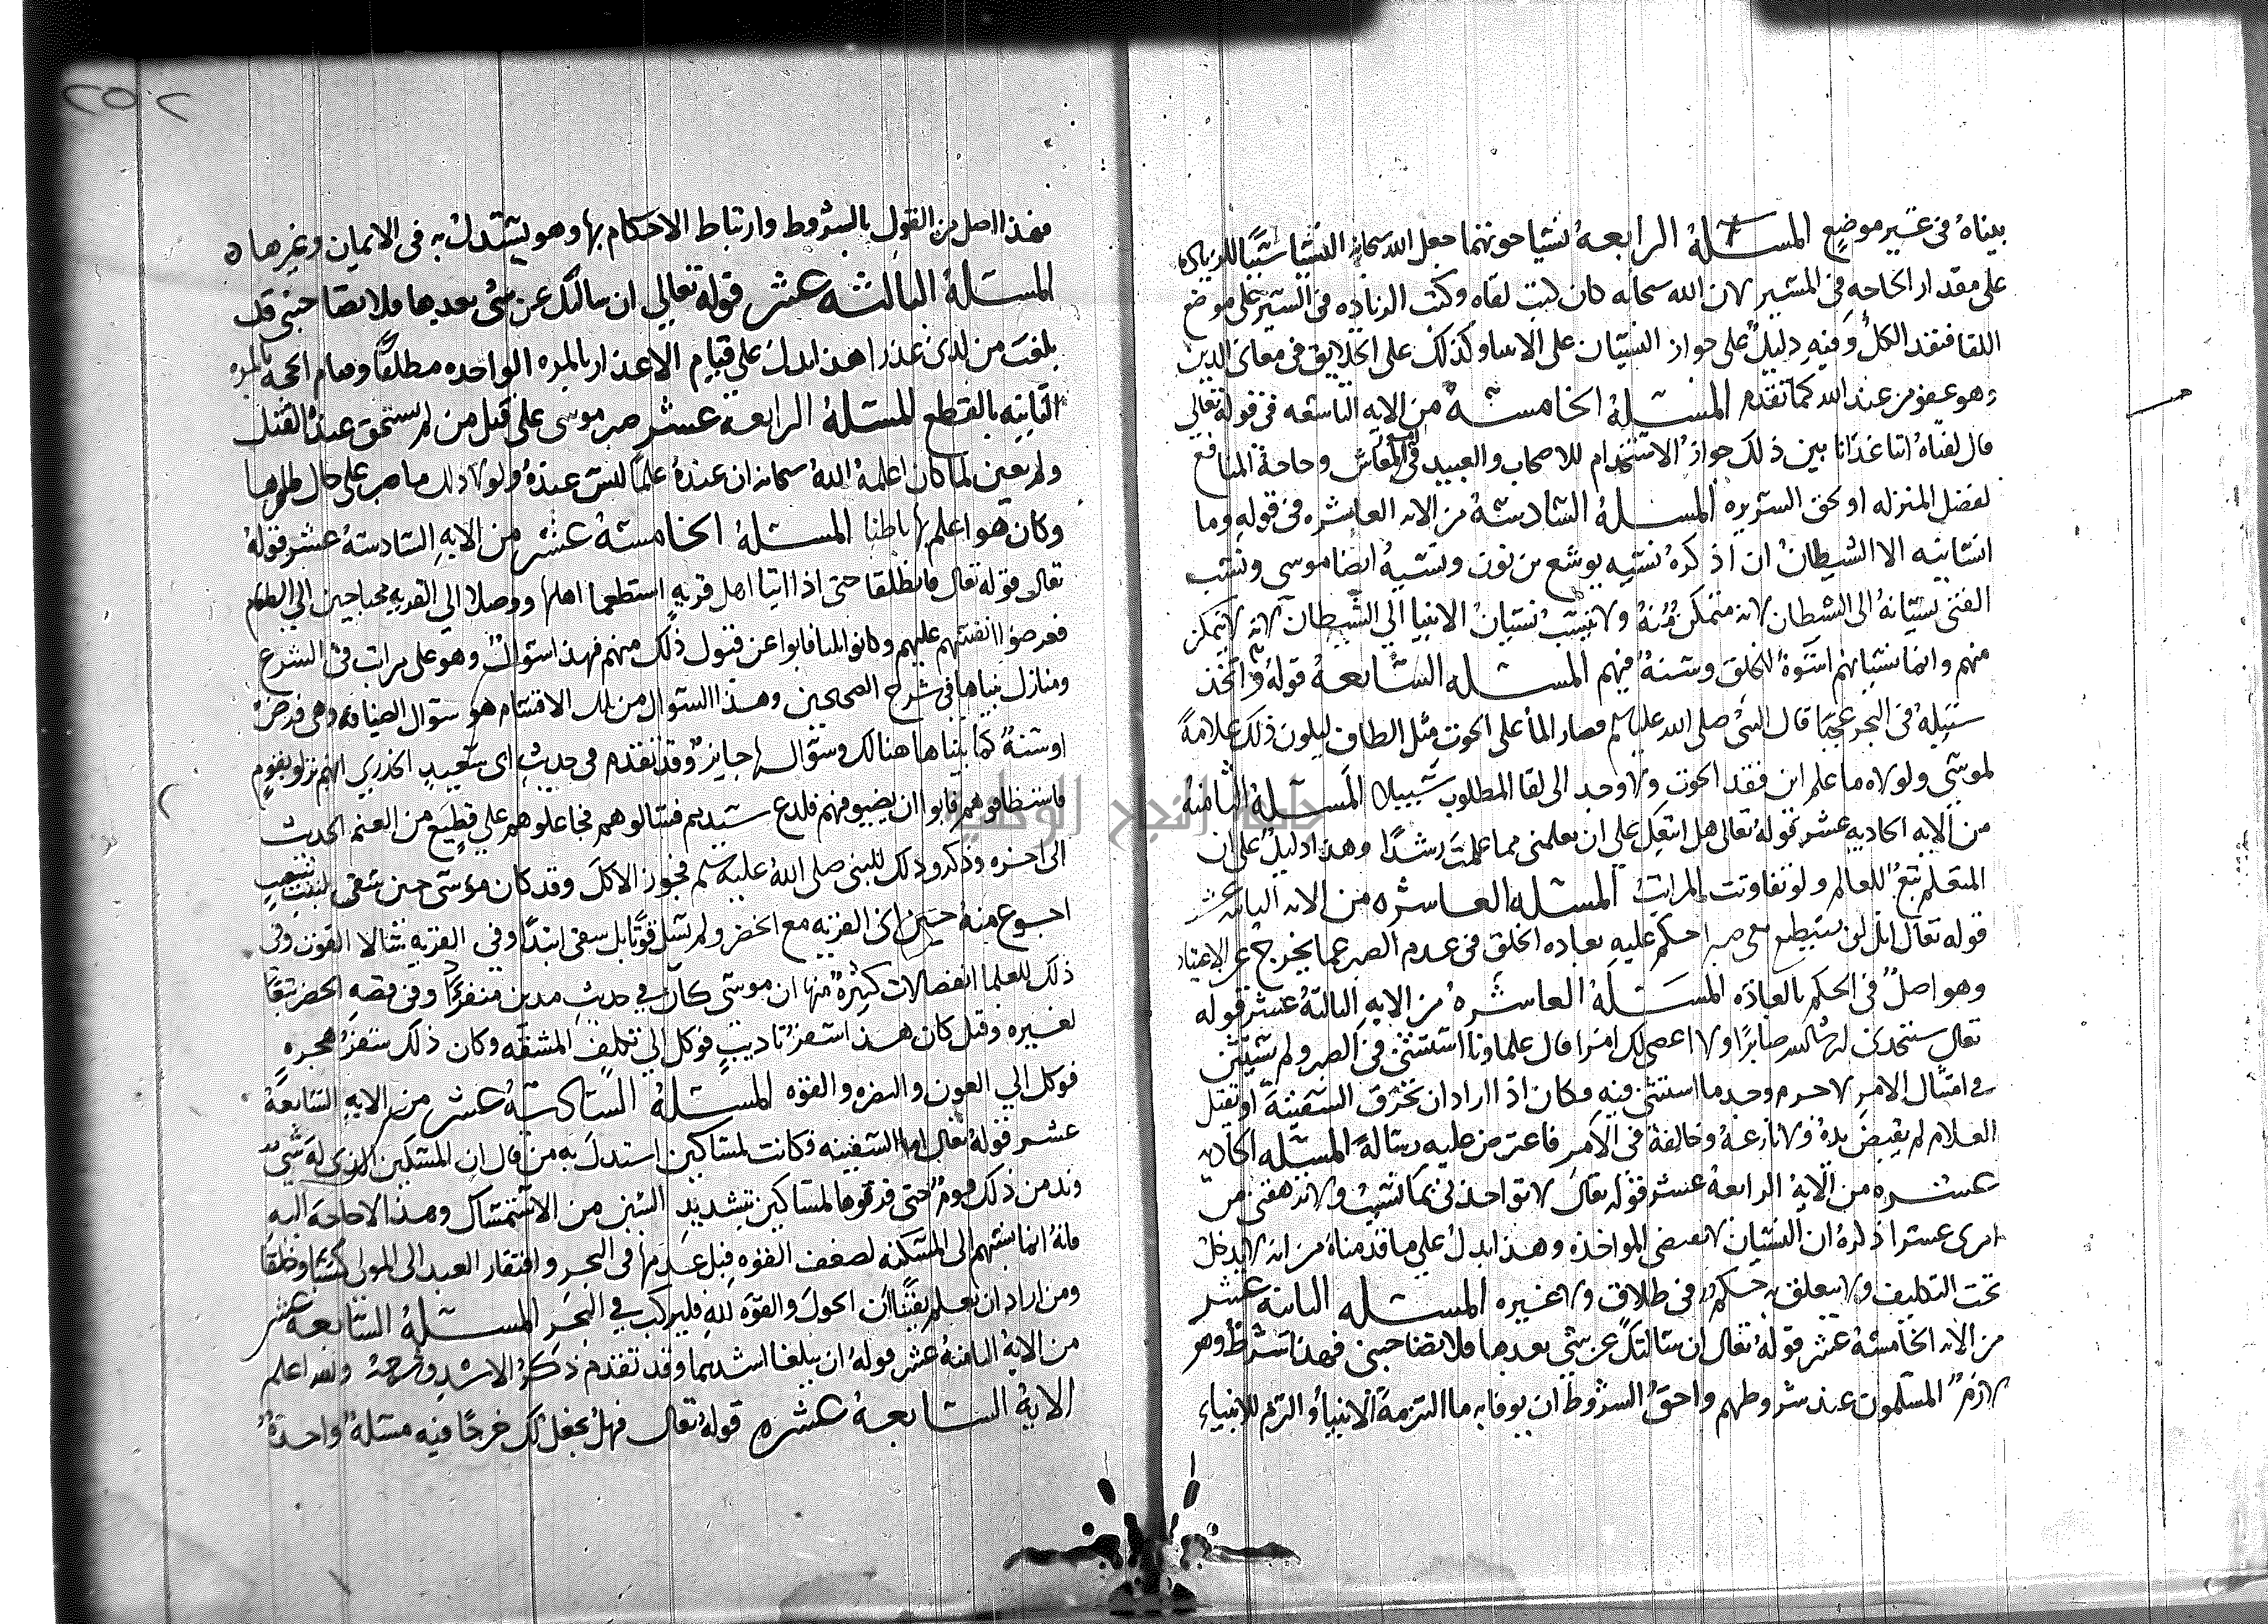 بيناه في غير موضع المسئلة الرابعة نسيا حوتهما جعل الله سبحانه النسيا سببا للزياده
على مقدار الحاجه في المسير لان الله سبحانه كان كتب لقاه وكتب الزياده في السير على موضع
اللقا فنفذ الكل وفيه دليل على جواز النسيان على الانبيا وكذلك على الخلايق في معاني الدين
وهو عفو من عند الله كما تقدم المسئلة الخامسة من الايه التاسعه في قوله تعالى
قال لفتاه اتنا غدانا بين ذلك جواز الاستخدام للاصحاب والعبيد في امور المعاش وحاجة المنافع
لفضل المنزله او لحق السيده المسئلة السادسة من الايه العاشره في قوله وما
انسانيه الا الشيطان ان اذكره نسيه يوشع بن نون ونسيه ايضا موسى ونسب
الفتى نسيانه الى الشيطان لانه متمكن منه ولا ينسب نسيان الانبيا الى الشيطان لانه لا يتمكن
منهم وانما نسيانهم اسوة للخلق وسنة فيهم المسئله السابعة قوله واتخذ
سبيله في البحر عجبا قال النبي صلى الله عليه وسلم فصار الما على الحوت مثل الطاق ليكون ذلك علامة
لموسى ولولاه ما علم اين فقد الحوت ولا وجد الى لقا المطلوب سبيلا المسئلة الثامنة
من الايه الحاديه عشر قوله تعالى هل اتبعك على ان تعلمني مما علمت رشدا وهذا دليل على ان
المتعلم تبع للعالم ولو تفاوتت المراتب المسئله العاشره من الايه الثانيه عشر
قوله تعالى انك لن تستطيع معي صبرا حكم عليه بعاده الخلق في عدم الصبر عما يخرج عن الاعتياد
وهو اصل في الحكم بالعادة المسئلة العاشرة من الايه الثالثة عشر قوله
تعالى ستجدني ان شا الله صابرا ولا اعصي لك امرا قال علماونا استثنى في الصبر ولم يستثن
في امتثال الامر لا جرم وجه ما استثنى فيه وكان اذا اراد ان يخرق السفينة او يقتل
الغلام لم يقبض يده ولا نازعه وخالفه في الامر فاعترض عليه وساله المسئله الحاديه
عشره من الاية الرابعة عشر قوله تعالى لا تواخذني بما نسيت ولا ترهقني من
امري عسرا ذكره ان النسيان لا يقتضي المواخذه وهذا يدل على ما قدمناه من انه لا يدخل
تحت التكليف ولا يتعلق به حكم في طلاق ولا غيره المسئله الثانية عشر
من الايه الخامسة عشر قوله تعالى ان سالتك عن شي بعدها فلا تصاحبني فهذا شرط وهو
لازم المسلمون عند شروطهم واحق الشروط ان يوفا به ما التزمه الانبيا او التزم للانبياء
٢٥٢
فهذا اصل من القول بالشروط وارتباط الاحكام بها وهو يستدل به في الايمان وغيرها ه
المسئلة الثالثه عشر قوله تعالى ان سالتك عن شي بعدها فلا تصاحبني قد
بلغت من لدني عذرا هذا يدل على قيام الاعذار بالمره الواحده مطلقا وقيام الحجه بالمره
الثانيه بالقطع المسئلة الرابعة عشر صبر موسى على قتل من لم يستحق عنده القتل
ولم يغير لما كان اعلمه الله سبحانه ان عنده علما ليس عنده ولولا ذلك ما صبر على حال ظاهرها
وكان هو اعلم بها باطنا المسئلة الخامسة عشر من الايه السادسة عشر قوله
تعالى قوله تعالى فانطلقا حتى اذا اتيا اهل قرية استطعما اهلها ووصلا الى القريه محتاجين الى الطعام
فعرضوا انفسهم عليهم وكانوا المنا فابوا عن قبول ذلك منهم فهذا سوال وهو على مراتب في الشرع
ومنازل بيناها في شرح الصحيحين وهذا السوال من تلك الاقسام هو سوال الضيافه وهي فرض
او سنة كما بيناها هنالك وسوالها جايز وقد تقدم في حديث ابي سعيد الخدري انهم نزلوا بقوم
فاستضافوهم فابوا ان يضيفوهم فلدغ سيدهم فسالوهم فجاعلوهم على قطيع من الغنم الحديث
الى اخره وذكروا ذلك للنبي صلى الله عليه وسلم فجوز الاكل وقد كان موسى حين سقى لبنت شعيب
اجوع منه حين اتى القريه مع الخضر ولم يسل قوتا بل سقى ابتدا وفي القريه سالا القوت وفي
ذلك للعلما انفصالات كثيرة منها ان موسى كان في حديث مدين منفردا وفي قصه الخضر تبعا
لغيره وقيل كان هذا سفر تاديب فوكل الى تكلف المشقه وكان ذلك سفر هجره
فوكل الى العون والنصره والقوه المسئلة السادسة عشر من الايه السابعة
عشر قوله تعالى اما السفينه فكانت لمساكين استدل به من قال ان المسكين الذي له شي
وفر من ذلك قوم حتى قروها لمساكين بتشديد السين من الاستمساك وهذا لا حاجه اليه
فانه انما نسبهم الى المسكنه لضعف القوه قبل عدمها في البحر وافتقار العبد الى المولى كسبا وخلقا
ومن اراد ان يعلم يقينا ان الحول والقوه لله فليركب في البحر المسئلة السابعة عشر
من الاية الثامنة عشر قوله ان يبلغا اشدهما وقد تقدم ذكر الاشد وشرحه والله اعلم
الاية السابعة عشره قوله تعالى فهل نجعل لك خرجا فيه مسئلة واحدة